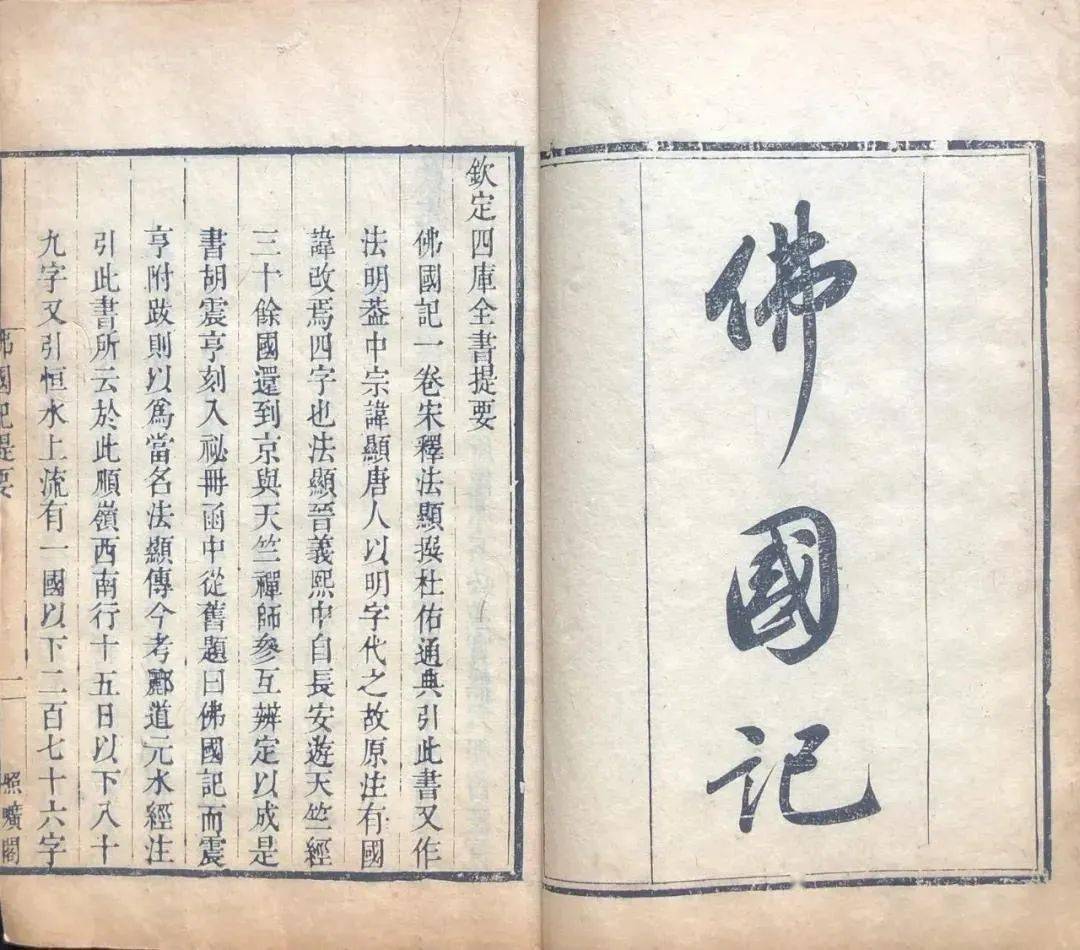 佛國記
欽定四庫全書提要
佛國記一卷宋釋法顯撰杜佑通典引此書又作
法明葢中宗諱顯唐人以明字代之故原注有國
諱改焉四字也法顯晉義熙中自長安遊天竺經
三十餘國還到京與天竺禪師參互辨定以成是
書胡震亨刻入祕冊函中從舊題曰佛國記而震
亨附跋則以爲當名法顯傳今考酈道元水經注
引此書所云於此順嶺西南行十五日以下八十
九字又引恒水上流有一國以下二百七十六字
佛國記提要
一
照曠閣